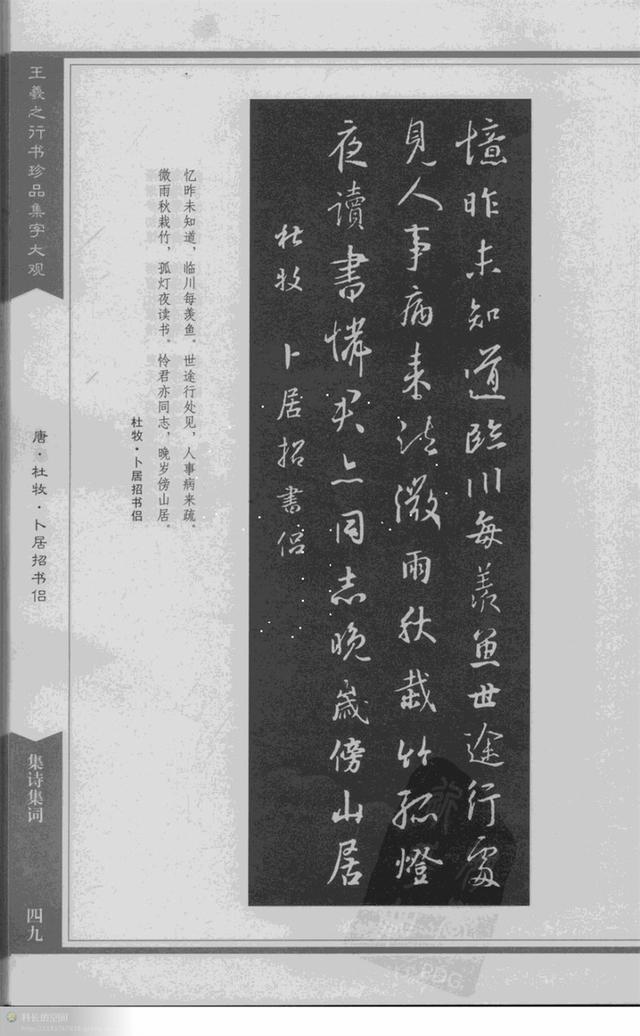 憶昨未知道臨川每羨魚世途行處
見人事病来疎微雨秋栽竹孤燈
夜讀書憐君亦同志晚歲傍山居
杜牧 卜居招書侶
忆昨未知道,临川每羡鱼。世途行处见,人事病来疏。
微雨秋栽竹,孤灯夜读书。怜君亦同志,晚岁傍山居。
杜牧·卜居招书侣
王羲之行书珍品集字大观
唐·杜牧·卜居招书侣
集诗集词
四九
科长的空间